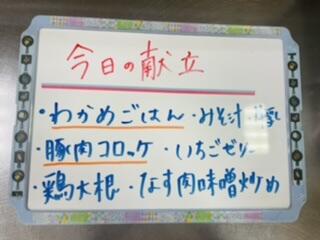 今日の献立
・わかめごはん・みそ汁
・豚肉コロッケ・いちごゼリー
・鶏大根・なす肉味噌炒め